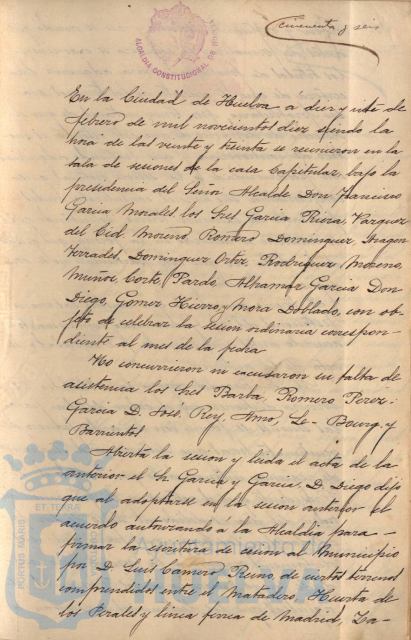 cincuenta y seis
ALCALDIA CONSTITUCIONAL DE HUELVA
En la Ciudad de Huelva á diez y siete de
febrero de mil novecientos diez siendo la
hora de las veinte y treinta se reunieron en la
sala de sesiones de la casa Capitular, bajo la
presidencia del Señor Alcalde Don Francisco
Garcia Morales, los Sres Garcia Riera, Vazquez
del Cid Moreno, Romero Dominguez, Aragon
Terrades, Dominguez Ortiz, Rodriguez Moreno,
Muñoz, Corto, Pardo, Alhamar, Garcia Don
Diego, Gomez Hierro, y Mora Doblado, con ob-
jeto de celebrar la sesion ordinaria correspon-
diente al mes de la fecha
No concurrieron ni excusaron su falta de
asistencia los Sres Barba, Romero Perez;
Garcia D. José, Rey, Amo, Le-Bourg, y
Barrientos
Abierta la sesion y leida el acta de la
anterior el Sr. Garcia y Garcia, D. Diego dijo
que al adoptarse en la sesion anterior el
acuerdo autorizando á la Alcaldia para
firmar la escritura de cesion al Municipio
por D. Luis Camero Reino, de ciertos terrenos
comprendidos entre el Matadero, Huerta de
los Perales y linea ferrea de Madrid, Za-
PORTUS MARIS ET TERRAE CUSTODIA
Ayuntamiento
HUELVA